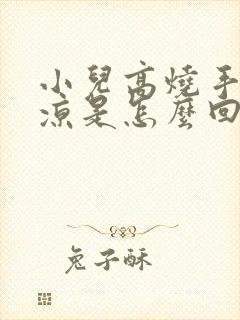 小兒高燒手
涼是怎麼回
兔子酥